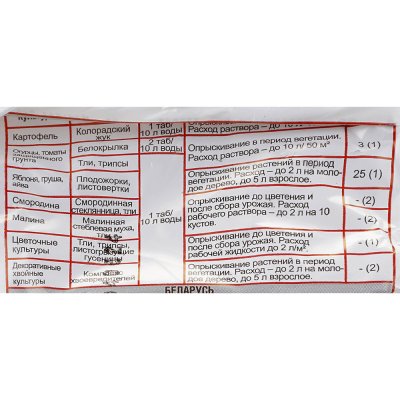 Картофель
Колорадский
жук
1 таб/
10 л воды
Опрыскивание в период вегетации.
Расход раствора – до 10 л/
Огурцы, томаты
защищенного
грунта
Белокрылка
2 таб/
10 л воды
Тли, трипсы
Опрыскивание в период вегетации.
Расход раствора – до 10 л/ 50 м²
3 (1)
Яблоня, груша,
айва
Плодожорки,
листовертки
Опрыскивание растений в период
вегетации. Расход – до 2 л на моло-
дое дерево, до 5 л взрослое.
25 (1)
Смородина
Смородинная
стеклянница, тли
1 таб/
10 л воды
Опрыскивание до цветения и
после сбора урожая. Расход
рабочего раствора – до 2 л на 10
кустов.
- (2)
Малина
Малинная
стеблевая муха,
тли
Цветочные
культуры
Тли, трипсы,
листогрызущие
гусеницы
Опрыскивание до цветения и
после сбора урожая. Расход
рабочей жидкости до 2 л/м².
- (1)
Декоративные
хвойные
культуры
Комплекс
хвоевредителей
Опрыскивание растений в период
вегетации. Расход – до 2 л на моло-
дое дерево, до 5 л взрослое.
- (2)
БЕЛАРУСЬ